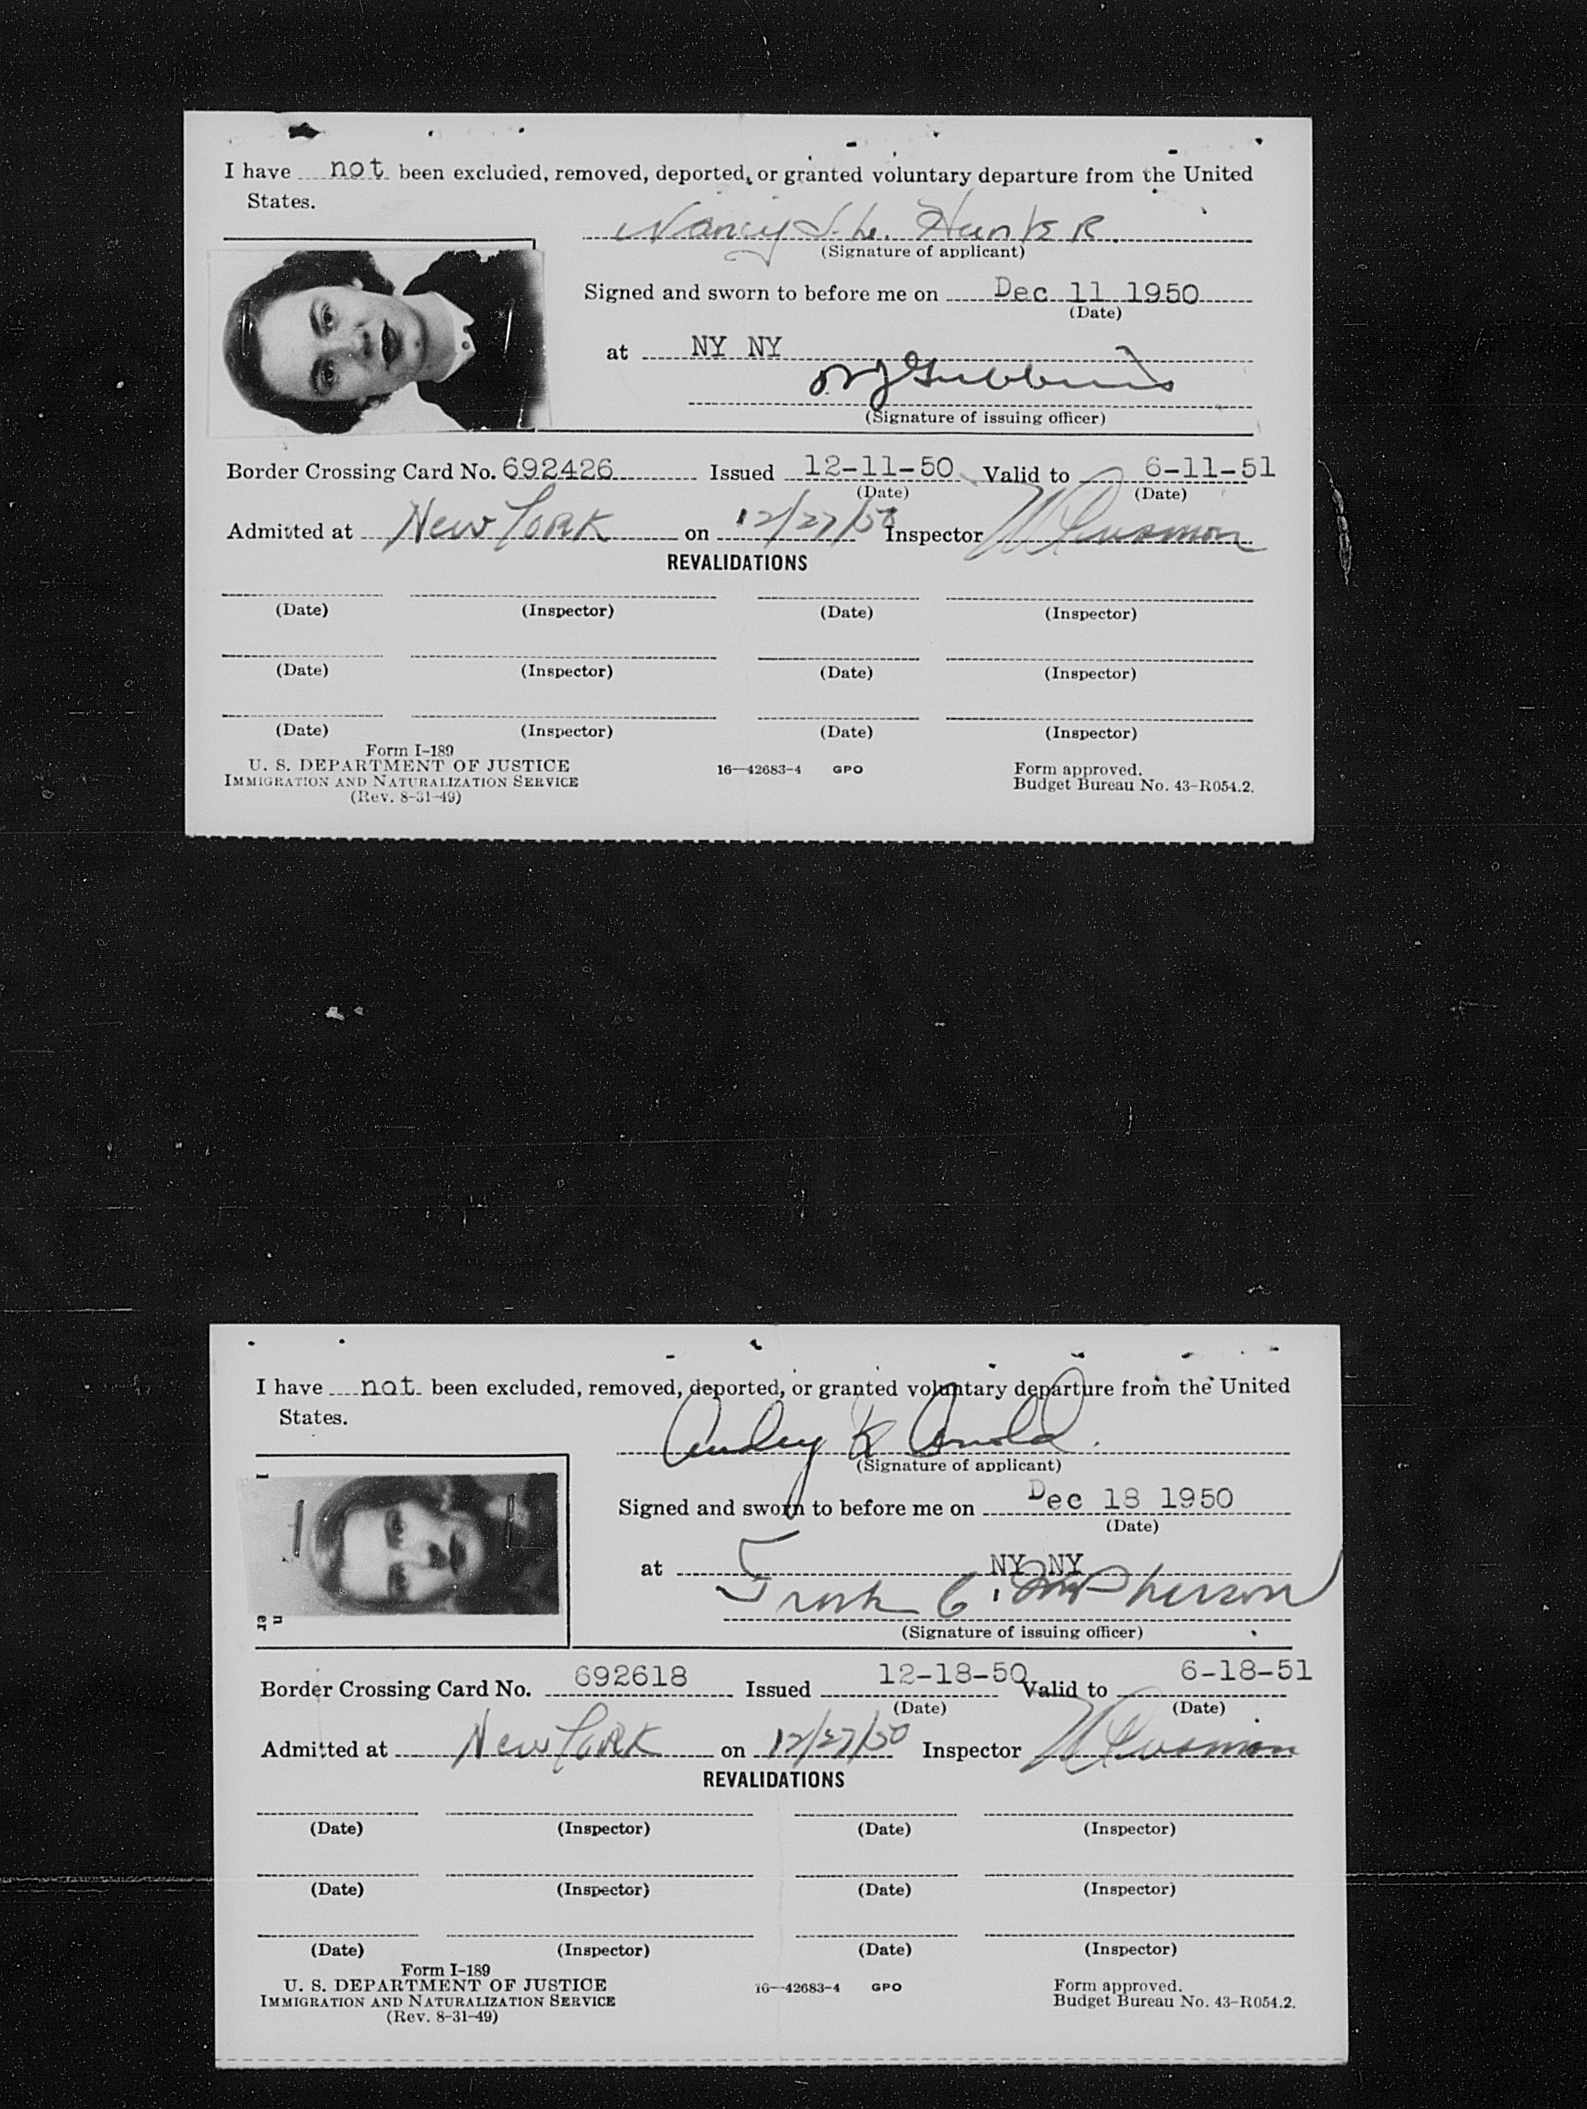 I have not been excluded, removed, deported, or granted voluntary departure from the United
States.
Nancy J. L. Hunter
(Signature of applicant)
Signed and sworn to before me on Dec 11 1950
(Date)
at NY NY
(Signature of issuing officer)
Border Crossing Card No. 692426 Issued 12-11-50 Valid to 6-11-51
(Date) (Date)
Admitted at New York on 12/27/50 Inspector
REVALIDATIONS
(Date) (Inspector) (Date) (Inspector)
(Date) (Inspector) (Date) (Inspector)
(Date) (Inspector) (Date) (Inspector)
Form I-189
U. S. DEPARTMENT OF JUSTICE 16—42683-4 GPO Form approved.
IMMIGRATION AND NATURALIZATION SERVICE Budget Bureau No. 43-R054.2.
(Rev. 8-31-49)
I have not been excluded, removed, deported, or granted voluntary departure from the United
States.
Audrey K Arnold.
(Signature of applicant)
Signed and sworn to before me on Dec 18 1950
(Date)
at NY NY
Frank C. McPherson
(Signature of issuing officer)
Border Crossing Card No. 692618 Issued 12-18-50 Valid to 6-18-51
(Date) (Date)
Admitted at New York on 12/27/50 Inspector
REVALIDATIONS
(Date) (Inspector) (Date) (Inspector)
(Date) (Inspector) (Date) (Inspector)
(Date) (Inspector) (Date) (Inspector)
Form I-189
U. S. DEPARTMENT OF JUSTICE 16—42683-4 GPO Form approved.
IMMIGRATION AND NATURALIZATION SERVICE Budget Bureau No. 43-R054.2.
(Rev. 8-31-49)